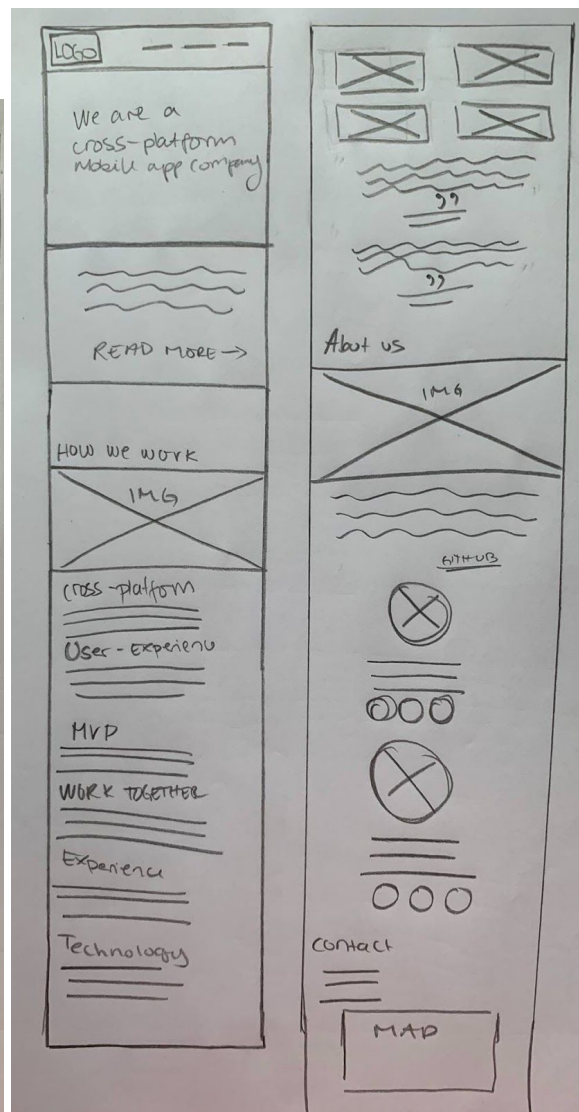 LOGO
We are a
cross-platform
Mobile app company
READ MORE →
HOW WE WORK
IMG
Cross-platform
User-Experienu
MVP
WORK TOGETHER
Experience
Technology
,,
,,
About us
IMG
GITHUB
Contact
MAP